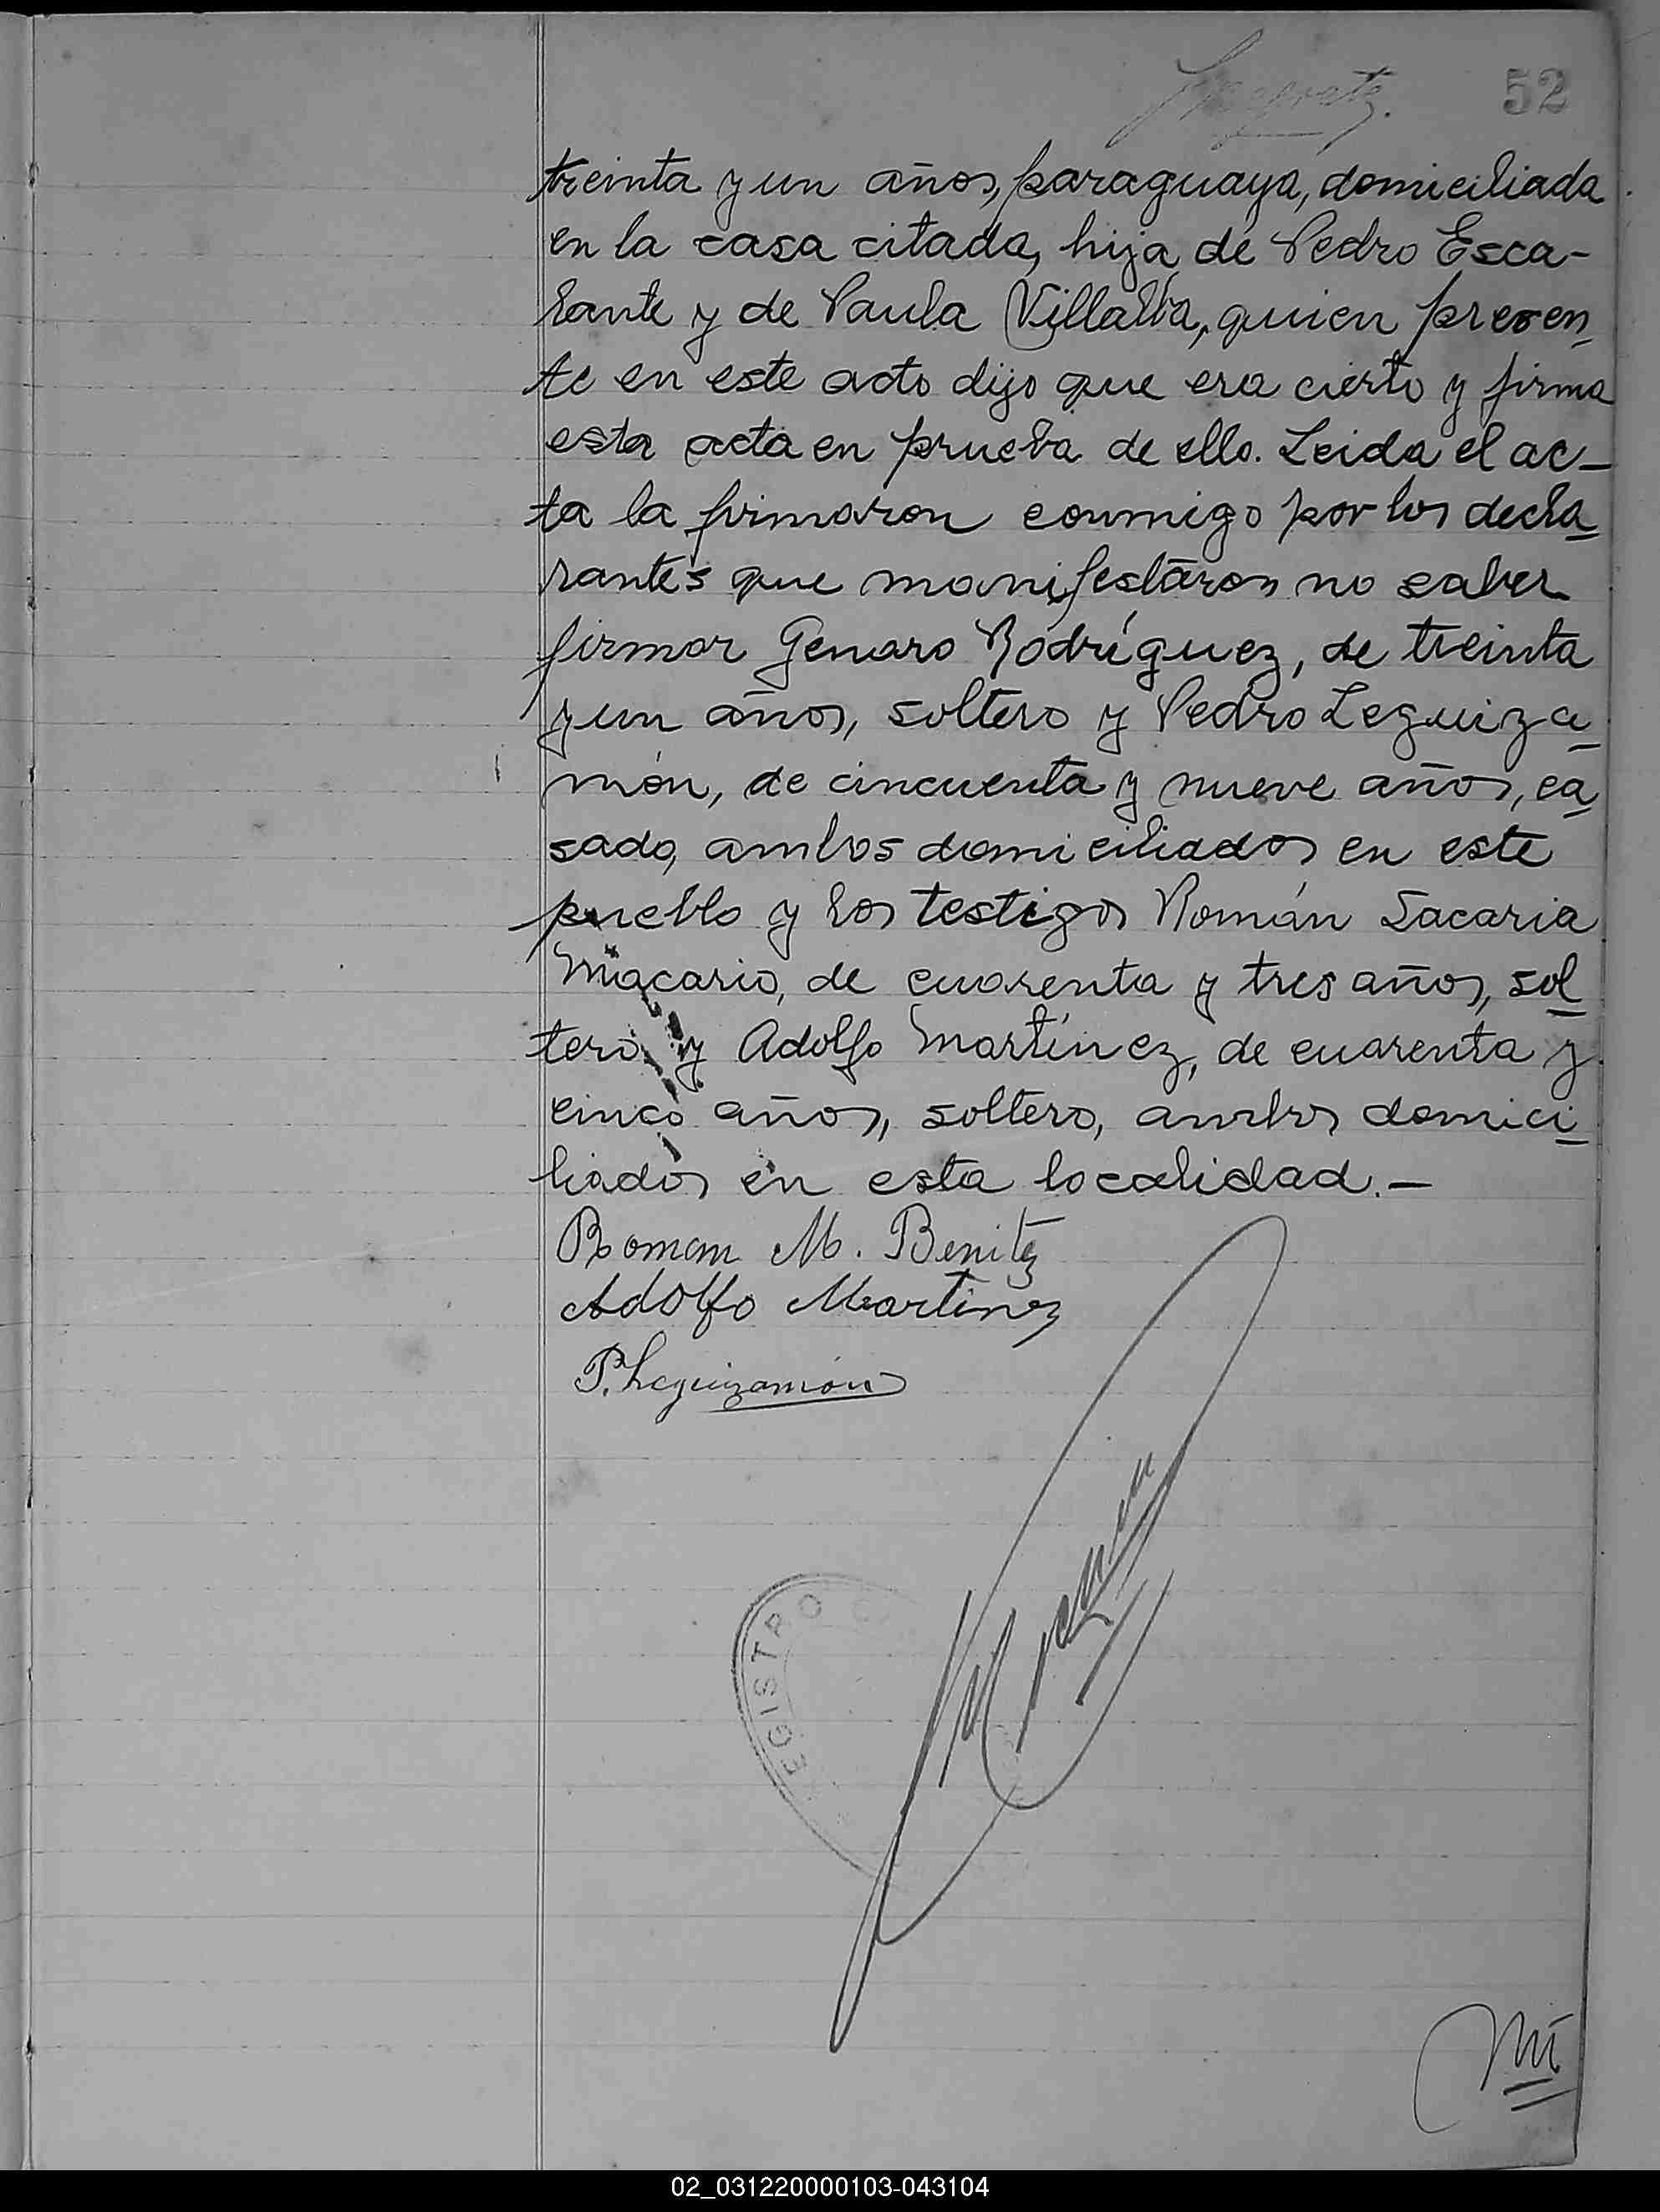 52
treinta y un años, paraguaya, domiciliada
en la casa citada, hija de Pedro Esca-
lante y de Paula Villalba, quien presen
te en este acto dijo que era cierto y firma
esta acta en prueba de ello. Leida el ac-
ta la firmaron conmigo por los decla
rantes que manifestaron no saber
firmar Genaro Rodríguez, de treinta
y un años, soltero y Pedro Leguiza
món, de cincuenta y nueve años, ca
sado, ambos domiciliados en este
pueblo y los testigos Román Sacaria
Macario, de cuarenta y tres años, sol
tero y Adolfo Martínez, de cuarenta y
cinco años, soltero, ambos domici
liados en esta localidad.-
Roman M. Benitez
Adolfo Martinez
P. Leguizamón
REGISTRO C
02_031220000103-043104